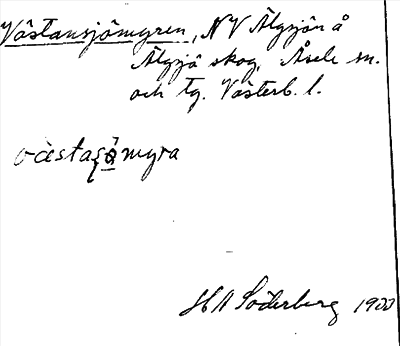 Västansjömyren, NV Älgsjön å
Älgsjö skog, Åsele sn.
och tg. Västerb. l.
västaʂö̀myra
H A Söderberg 1900